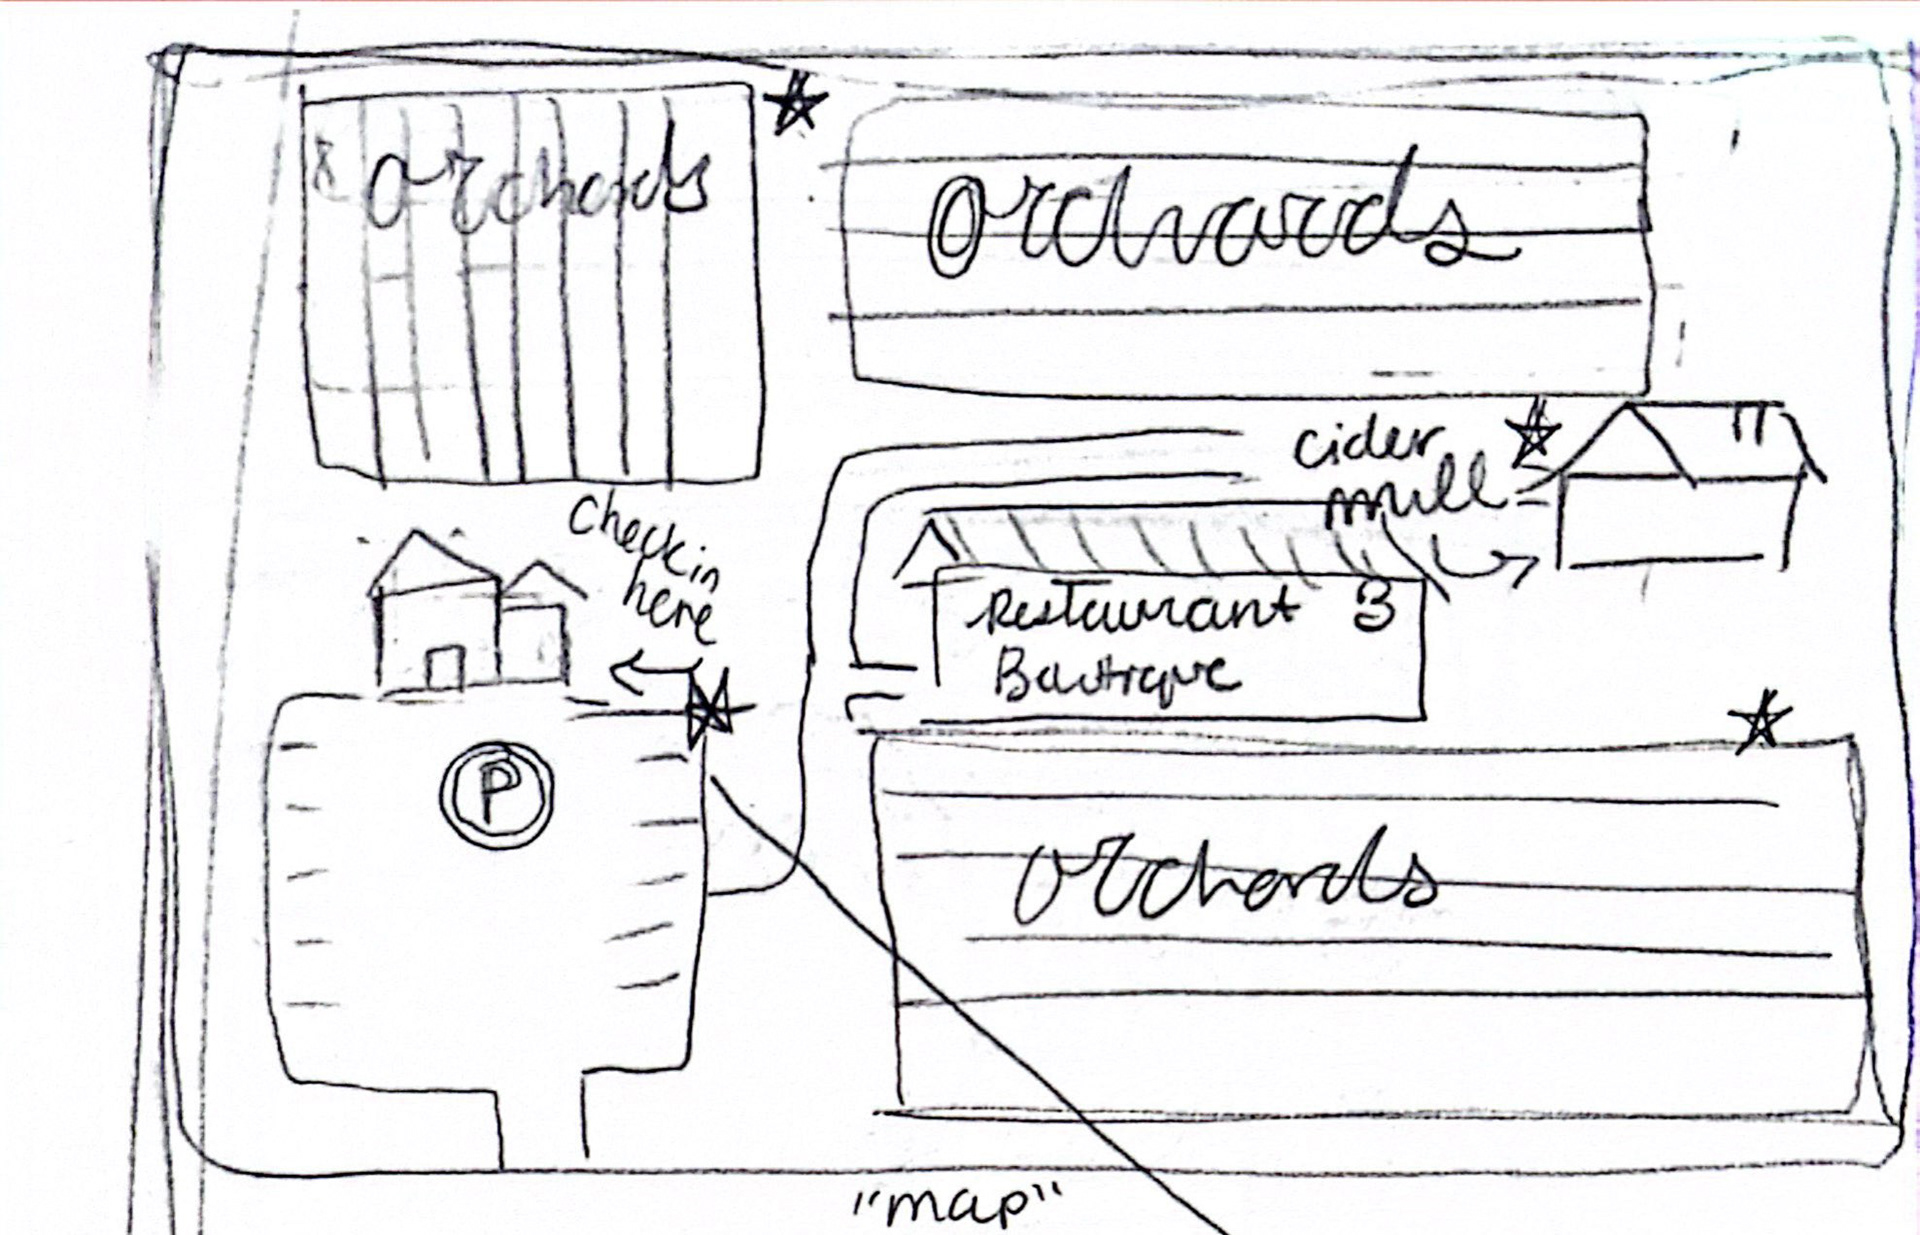 orchards
orchards
cider
mill
check in
here
Restaurant 3
Boutique
P
orchards
"map"